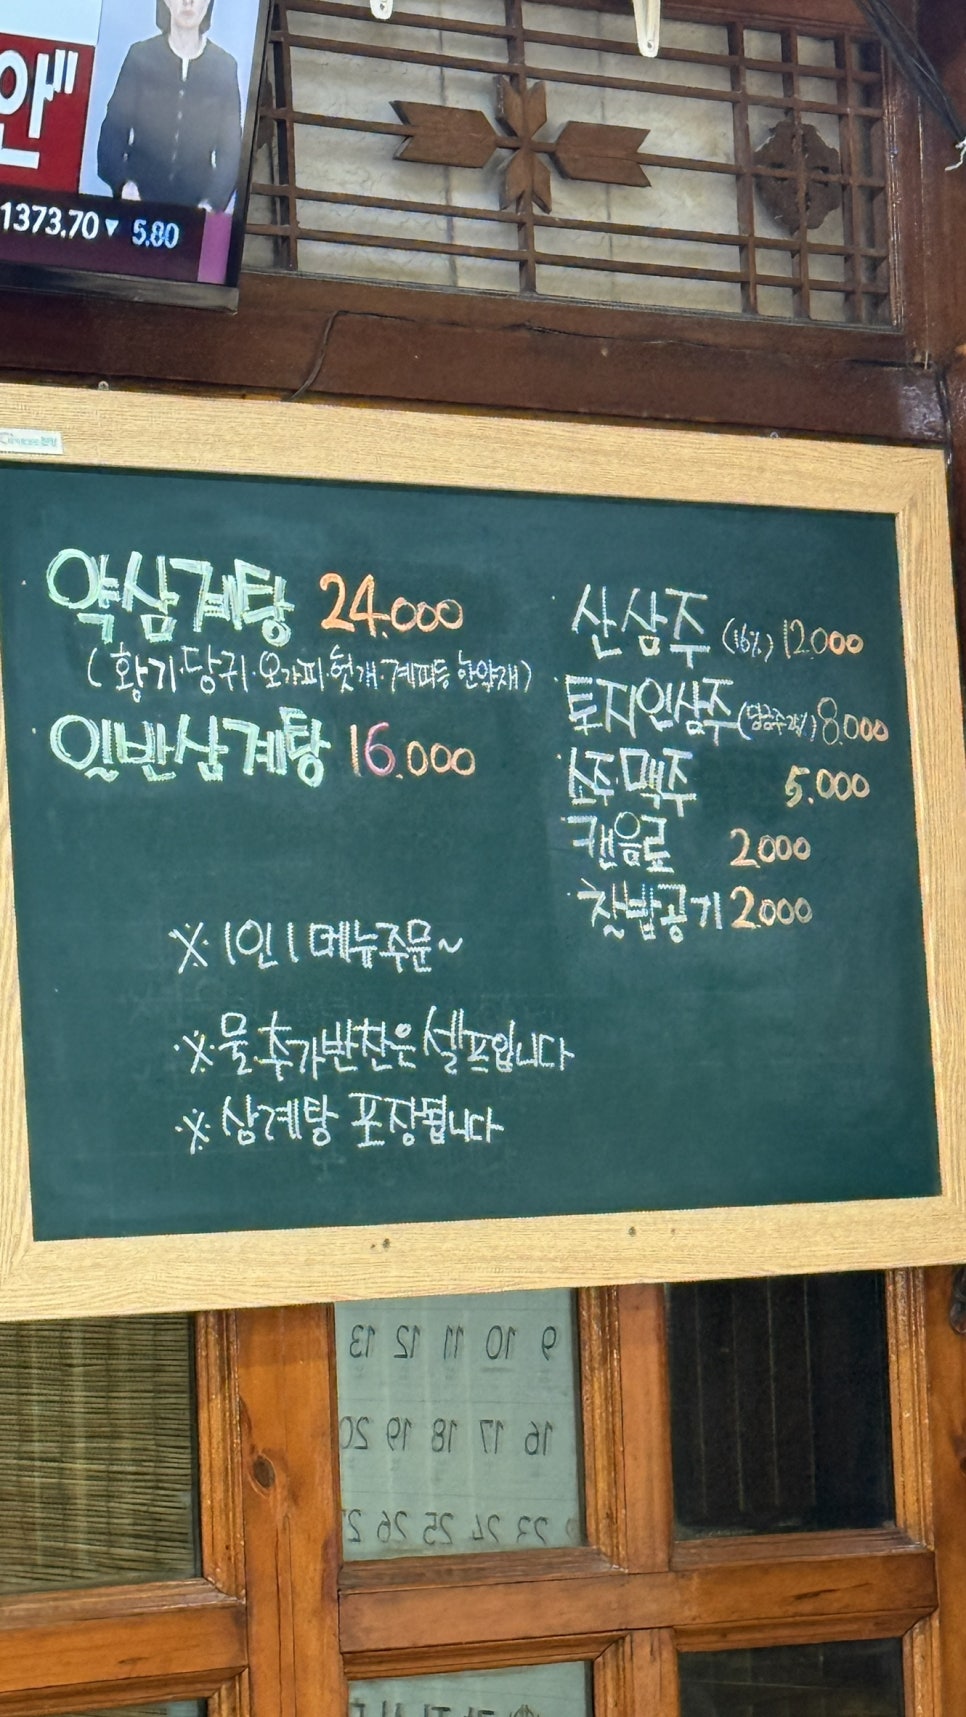 안"
1373.70▼ 5.80
약삼계탕 24.000
(황기·당귀·오가피·헛개·계피등 한약재)
일반삼계탕 16.000
산삼주 (16%) 12.000
토지인삼주 8.000
소주·맥주 5.000
캔음료 2.000
찰밥공기 2.000
※ 1인 1메뉴주문~
※ 물·추가반찬은 셀프입니다
※ 삼계탕 포장됩니다
9 10 11 12 13
16 17 18 19 20
23 24 25 26